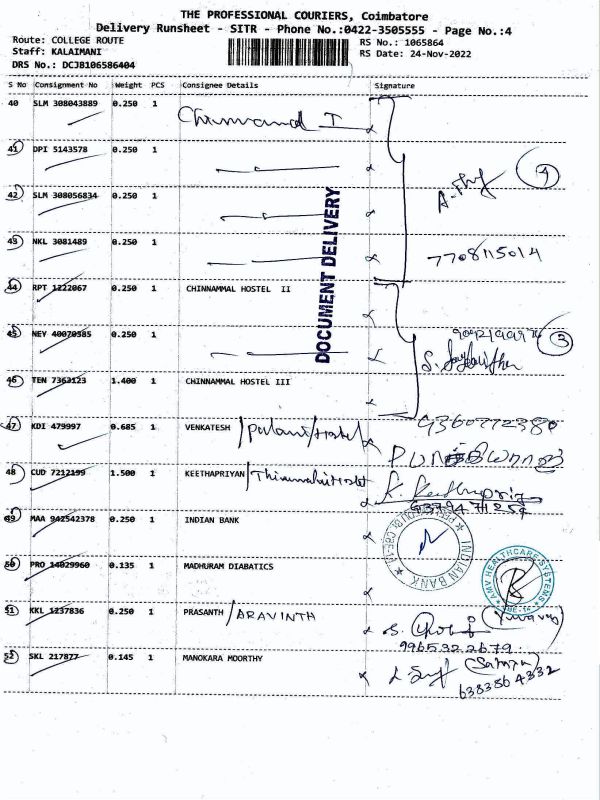 THE PROFESSIONAL COURIERS, Coimbatore
Delivery Runsheet - SITR - Phone No.:0422-3505555 - Page No.:4
Route: COLLEGE ROUTE RS No.: 1065864
Staff: KALAIMANI RS Date: 24-Nov-2022
DRS No.: DCJB106586404
S No Consignment No Weight PCS Consignee Details Signature
40 SLM 308043889 0.250 1
41 DPI 5143578 0.250 1
4
42 SLM 308056834 0.250 1
DOCUMENT DELIVERY
43 NKL 3081489 0.250 1 7708115014
44 RPT 1222067 0.250 1 CHINNAMMAL HOSTEL II
45 NEY 40070385 0.250 1
3
46 TEN 7362123 1.400 1 CHINNAMMAL HOSTEL III
9360772380
47 KDI 479997 0.685 1 VENKATESH / Palani Hostel
48 CUD 7212199 1.500 1 KEETHAPRIYAN / Thirumalai Hostel
K. Keethapriya
49 MAA 942542378 0.250 1 INDIAN BANK
INDIAN BANK
50 PRO 14029960 0.135 1 MADHURAM DIABATICS
AMV HEALTHCARE SYSTEMS
51 KKL 1237836 0.250 1 PRASANTH / ARAVINTH
9965322679
52 SKL 217877 0.145 1 MANOKARA MOORTHY
6383564332